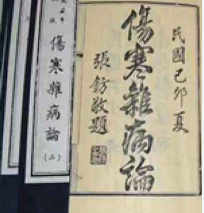 民國己卯夏
傷寒雜病論
張鈁敬題
傷寒雜病論
(二)